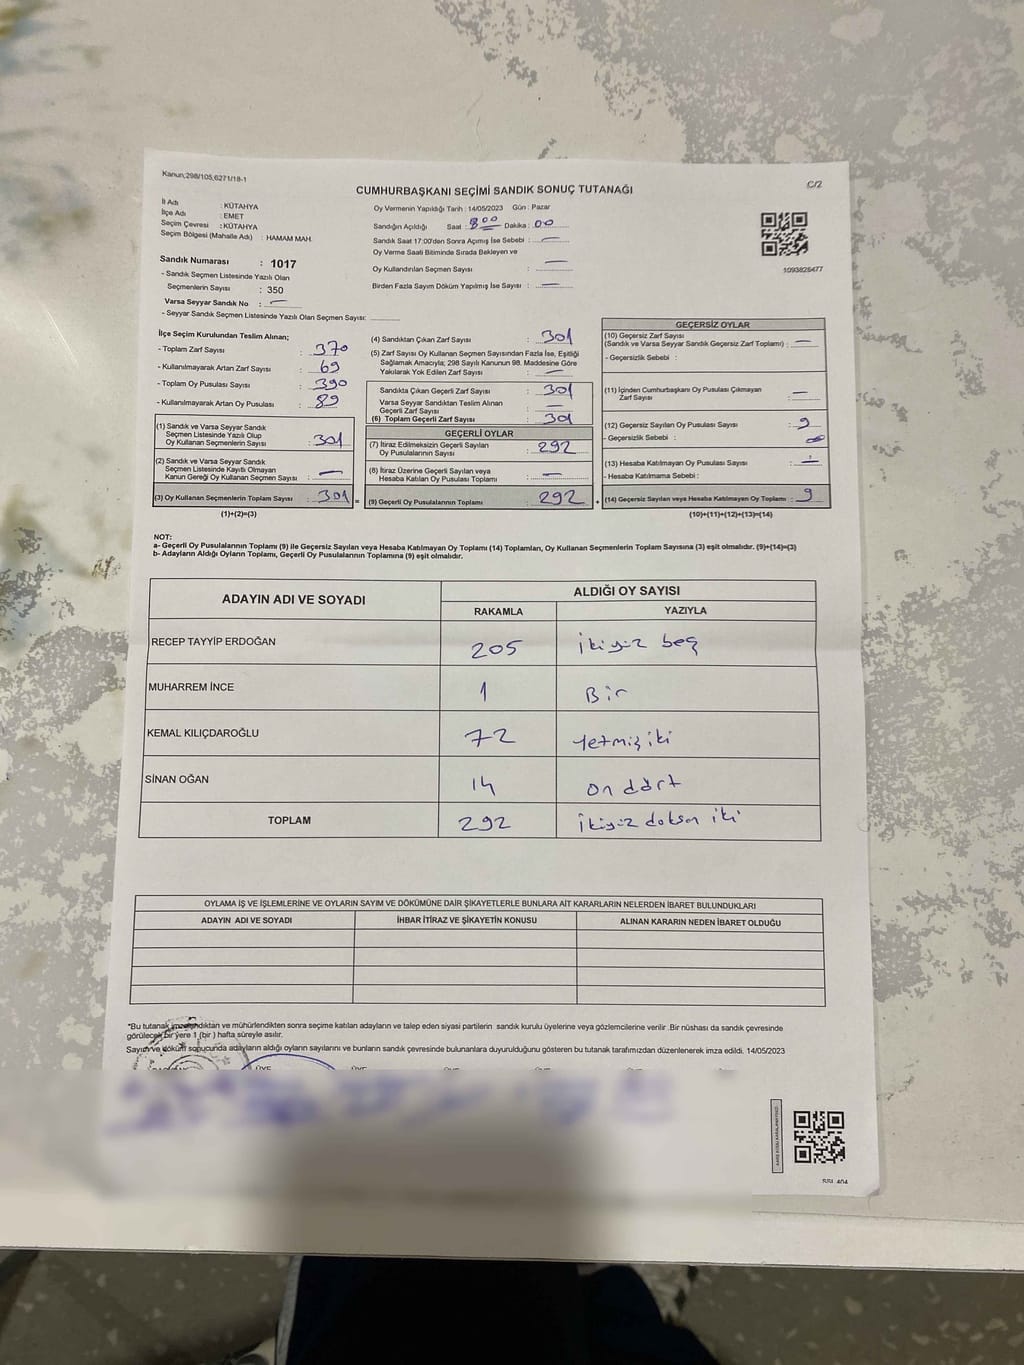 Kanun;298/105,6271/18-1
C/2
CUMHURBAŞKANI SEÇİMİ SANDIK SONUÇ TUTANAĞI
İl Adı : KÜTAHYA
İlçe Adı : EMET
Seçim Çevresi : KÜTAHYA
Seçim Bölgesi (Mahalle Adı) : HAMAM MAH.
Sandık Numarası : 1017
- Sandık Seçmen Listesinde Yazılı Olan
Seçmenlerin Sayısı : 350
Varsa Seyyar Sandık No : —
- Seyyar Sandık Seçmen Listesinde Yazılı Olan Seçmen Sayısı:
Oy Vermenin Yapıldığı Tarih : 14/05/2023 Gün : Pazar
Sandığın Açıldığı Saat : 8:00 Dakika : 00
Sandık Saat 17:00'den Sonra Açımış İse Sebebi : —
Oy Verme Saati Bitiminde Sırada Bekleyen ve
Oy Kullandırılan Seçmen Sayısı : —
Birden Fazla Sayım Döküm Yapılmış İse Sayısı : —
1093825477
İlçe Seçim Kurulundan Teslim Alınan;
- Toplam Zarf Sayısı : 370
- Kullanılmayarak Artan Zarf Sayısı : 69
- Toplam Oy Pusulası Sayısı : 390
- Kullanılmayarak Artan Oy Pusulası : 89
(1) Sandık ve Varsa Seyyar Sandık
Seçmen Listesinde Yazılı Olup
Oy Kullanan Seçmenlerin Sayısı : 301
(2) Sandık ve Varsa Seyyar Sandık
Seçmen Listesinde Kayıtlı Olmayan
Kanun Gereği Oy Kullanan Seçmen Sayısı : —
(3) Oy Kullanan Seçmenlerin Toplam Sayısı : 301
(1)+(2)=(3)
(4) Sandıktan Çıkan Zarf Sayısı : 301
(5) Zarf Sayısı Oy Kullanan Seçmen Sayısından Fazla İse, Eşitliği
Sağlamak Amacıyla; 298 Sayılı Kanunun 98. Maddesine Göre
Yakılarak Yok Edilen Zarf Sayısı : —
Sandıkta Çıkan Geçerli Zarf Sayısı : 301
Varsa Seyyar Sandıktan Teslim Alınan
Geçerli Zarf Sayısı : —
(6) Toplam Geçerli Zarf Sayısı : 301
GEÇERLİ OYLAR
(7) İtiraz Edilmeksizin Geçerli Sayılan
Oy Pusulalarının Sayısı : 292
(8) İtiraz Üzerine Geçerli Sayılan veya
Hesaba Katılan Oy Pusulası Toplamı : —
(9) Geçerli Oy Pusulalarının Toplamı : 292
GEÇERSİZ OYLAR
(10) Geçersiz Zarf Sayısı
(Sandık ve Varsa Seyyar Sandık Geçersiz Zarf Toplamı) : —
- Geçersizlik Sebebi :
(11) İçinden Cumhurbaşkanı Oy Pusulası Çıkmayan
Zarf Sayısı : —
(12) Geçersiz Sayılan Oy Pusulası Sayısı : 9
- Geçersizlik Sebebi :
(13) Hesaba Katılmayan Oy Pusulası Sayısı : —
- Hesaba Katılmama Sebebi :
(14) Geçersiz Sayılan veya Hesaba Katılmayan Oy Toplamı : 9
(10)+(11)+(12)+(13)=(14)
NOT:
a- Geçerli Oy Pusulalarının Toplamı (9) ile Geçersiz Sayılan veya Hesaba Katılmayan Oy Toplamı (14) Toplamları, Oy Kullanan Seçmenlerin Toplam Sayısına (3) eşit olmalıdır. (9)+(14)=(3)
b- Adayların Aldığı Oyların Toplamı, Geçerli Oy Pusulalarının Toplamına (9) eşit olmalıdır.
ADAYIN ADI VE SOYADI ALDIĞI OY SAYISI
RAKAMLA YAZIYLA
RECEP TAYYİP ERDOĞAN 205 ikiyüz beş
MUHARREM İNCE 1 Bir
KEMAL KILIÇDAROĞLU 72 yetmiş iki
SİNAN OĞAN 14 on dört
TOPLAM 292 ikiyüz doksan iki
OYLAMA İŞ VE İŞLEMLERİNE VE OYLARIN SAYIM VE DÖKÜMÜNE DAİR ŞİKAYETLERLE BUNLARA AİT KARARLARIN NELERDEN İBARET BULUNDUKLARI
ADAYIN ADI VE SOYADI İHBAR İTİRAZ VE ŞİKAYETİN KONUSU ALINAN KARARIN NEDEN İBARET OLDUĞU
*Bu tutanak imzalandıktan ve mühürlendikten sonra seçime katılan adayların ve talep eden siyasi partilerin sandık kurulu üyelerine veya gözlemcilerine verilir .Bir nüshası da sandık çevresinde
görülecek bir yere 1 (bir ) hafta süreyle asılır.
Sayım ve döküm sonucunda adayların aldığı oyların sayılarını ve bunların sandık çevresinde bulunanlara duyurulduğunu gösteren bu tutanak tarafımızdan düzenlenerek imza edildi. 14/05/2023